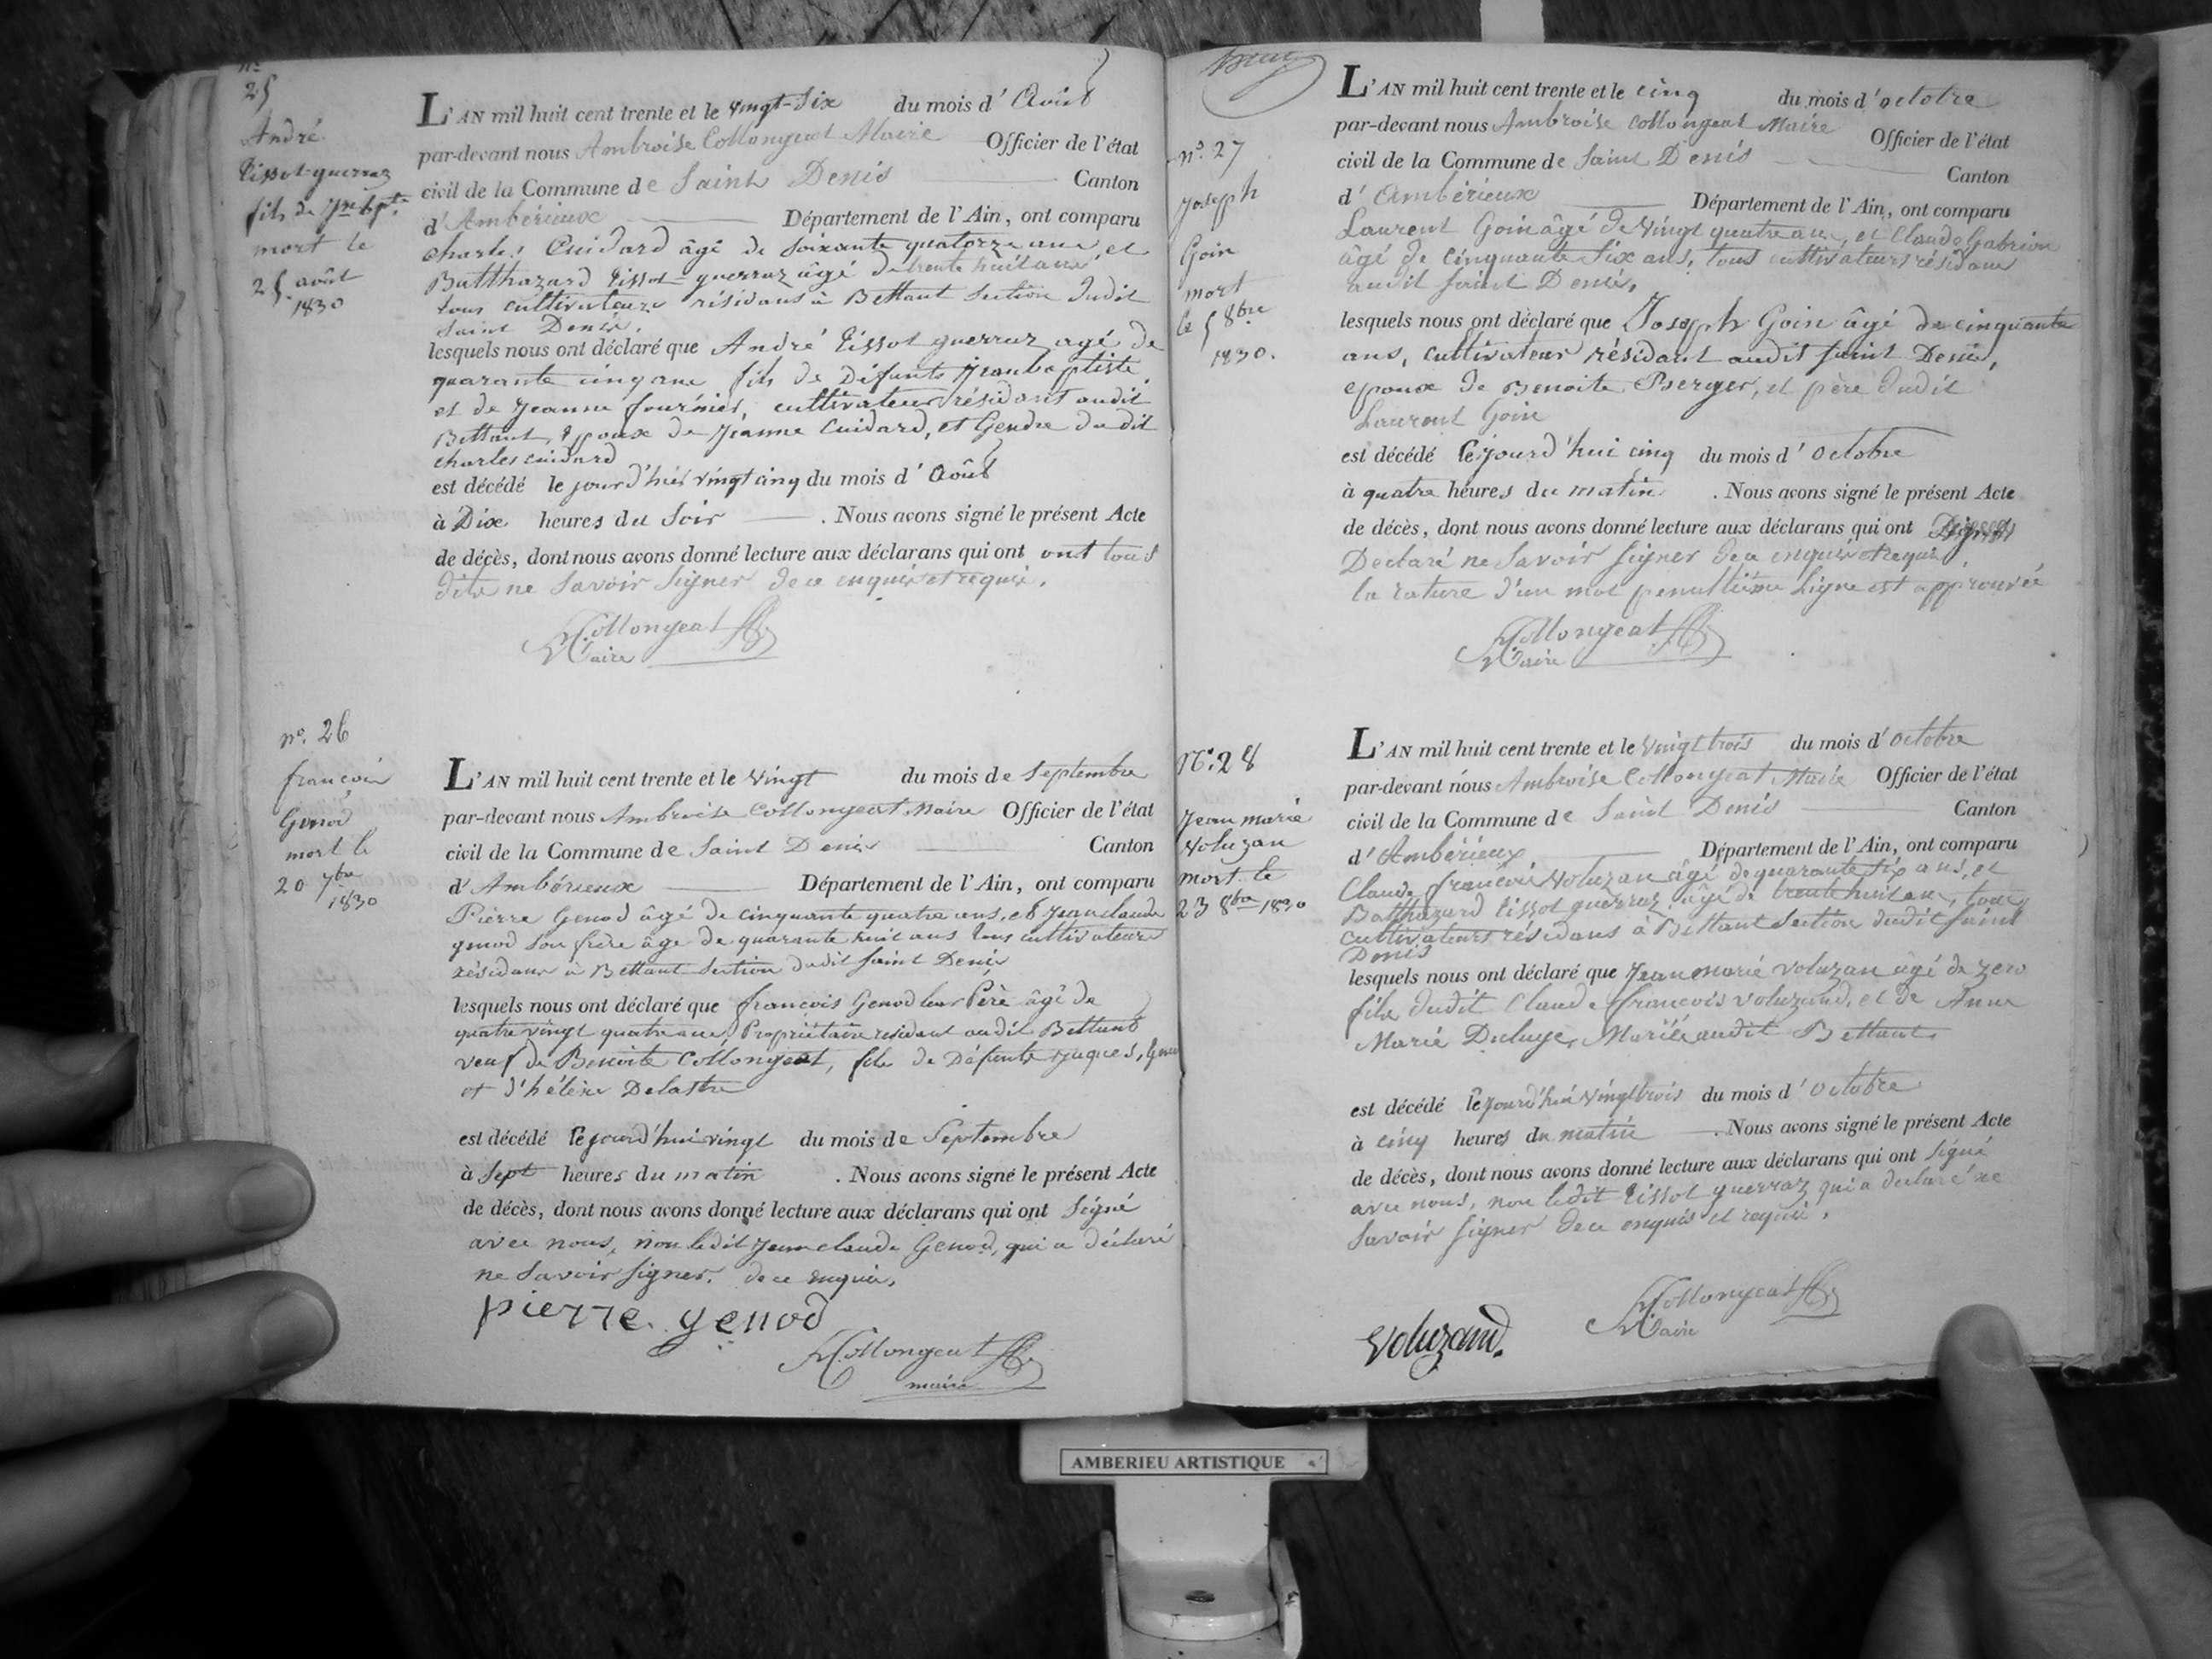 nº
25
André
Tissot-guerraz
fils de Jn bpte
mort le
25 août
1830
L'AN mil huit cent trente et le vingt-six du mois d'Août
par-devant nous Ambroise Collongeat Maire Officier de l'état
civil de la Commune de Saint Denis Canton
d'Ambérieux Département de l'Ain, ont comparu
charles Cuidard âgé de soixante quatorze ans et
Balthazard Tissot-guerraz âgé de trente huit ans
tous cultivateurs résidans à Bettant Section dudit
Saint Denis.
lesquels nous ont déclaré que André Tissot guerraz agé de
quarante cinq ans fils de Défunts Jean baptiste
et de Jeanne fournier, cultivateur résidant audit
Bettant, époux de Jeanne Cuidard, et Gendre du dit
charles cuidard
est décédé le jourd'hier vingt cinq du mois d'Août
à Dix heures du Soir . Nous avons signé le présent Acte
de décès, dont nous avons donné lecture aux déclarans qui ont ont tous
dits ne Savoir Signer de ce enquis et requis.
Collongeat
Maire
nº. 26
françois
Genod
mort le
20 7bre
1830
L'AN mil huit cent trente et le vingt du mois de Septembre
par-devant nous Ambroise Collongeat Maire Officier de l'état
civil de la Commune de Saint Denis Canton
d'Ambérieux Département de l'Ain, ont comparu
Pierre Genod âgé de cinquante quatre ans, et Jean claude
genod Son frère âge de quarante huit ans tous cultivateurs
résidans à Bettant Section dudit Saint Denis
lesquels nous ont déclaré que françois Genod leur Père âgé de
quatre vingt quatre ans, Propriétaire résidant audit Bettant
veuf de Benoite Collongeat, fils de Défunts Jaques, Genod
et d'hélène Delastre
est décédé le jourd'hui vingt du mois de Septembre
à Sept heures du matin . Nous avons signé le présent Acte
de décès, dont nous avons donné lecture aux déclarans qui ont Signé
avec nous, non ledit Jean claude Genod, qui a déclaré
ne Savoir Signer. de ce enquis,
pierre genod
Collongeat
maire
nº. 27
Joseph
Goin
mort
le 5 8bre
1830.
L'AN mil huit cent trente et le cinq du mois d'octobre
par-devant nous Ambroise Collongeat Maire Officier de l'état
civil de la Commune de Saint Denis Canton
d'Ambérieux Département de l'Ain, ont comparu
Laurent Goin âgé de vingt quatre ans, et Claude Gabrion
âgé de cinquante six ans, tous cultivateurs résidans
audit Saint Denis,
lesquels nous ont déclaré que Joseph Goin âgé de cinquante
ans, cultivateur résidant audit Saint Denis,
epoux de Benoite Berger, et père dudit
Laurent Goin
est décédé le jourd'hui cinq du mois d'Octobre
à quatre heures du matin . Nous avons signé le présent Acte
de décès, dont nous avons donné lecture aux déclarans qui ont
Declaré ne Savoir Signer de ce enquis et requis,
la rature d'un mot penultième Ligne est approuvée
Collongeat
Maire
Nº. 28
Jean marie
Voluzan
mort le
23 8bre 1830
L'AN mil huit cent trente et le vingt trois du mois d'octobre
par-devant nous Ambroise Collongeat Maire Officier de l'état
civil de la Commune de Saint Denis Canton
d'Ambérieux Département de l'Ain, ont comparu
Claude françois Voluzan âgé de quarante six ans, et
Balthazard Tissot guerraz âgé de trente huit ans, tous
cultivateurs résidans à Bettant Section dudit Saint
Denis
lesquels nous ont déclaré que Jean marie Voluzan âgé de zero
fils dudit Claude françois Voluzand, et de Anne
Marie Mariée audit Bettant
est décédé le jourd'hui vingt trois du mois d'Octobre
à cinq heures du matin . Nous avons signé le présent Acte
de décès, dont nous avons donné lecture aux déclarans qui ont Signé
avec nous, non ledit Tissot guerraz qui a declaré ne
Savoir Signer de ce enquis et requis.
Voluzand.
Collongeat
Maire
AMBERIEU ARTISTIQUE